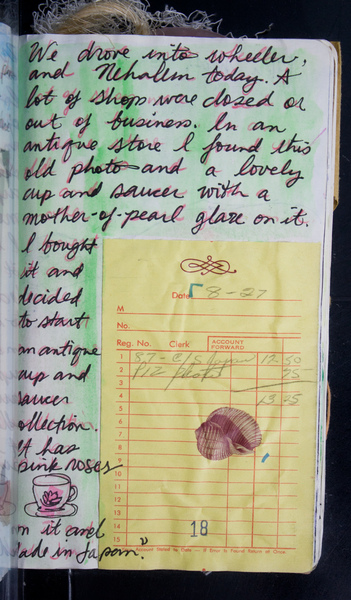 We drove into wheeler,
and Nehallem today. A
lot of shops were closed or
out of business. In an
antique store I found this
old photo and a lovely
cup and saucer with a
mother-of-pearl glaze on it.
I bought
it and
decided
to start
an antique
cup and
saucer
collection.
It has
pink roses
n it and
ade in Japan.
Date 8-27
M
No.
Reg. No. Clerk ACCOUNT FORWARD
1 87- C/S 12.50
2 P12 photo 75
3
4 13.25
5
6
7
8
9
10
11
12
13
14 18
15
Account Stated to Date - If Error Is Found Return at Once